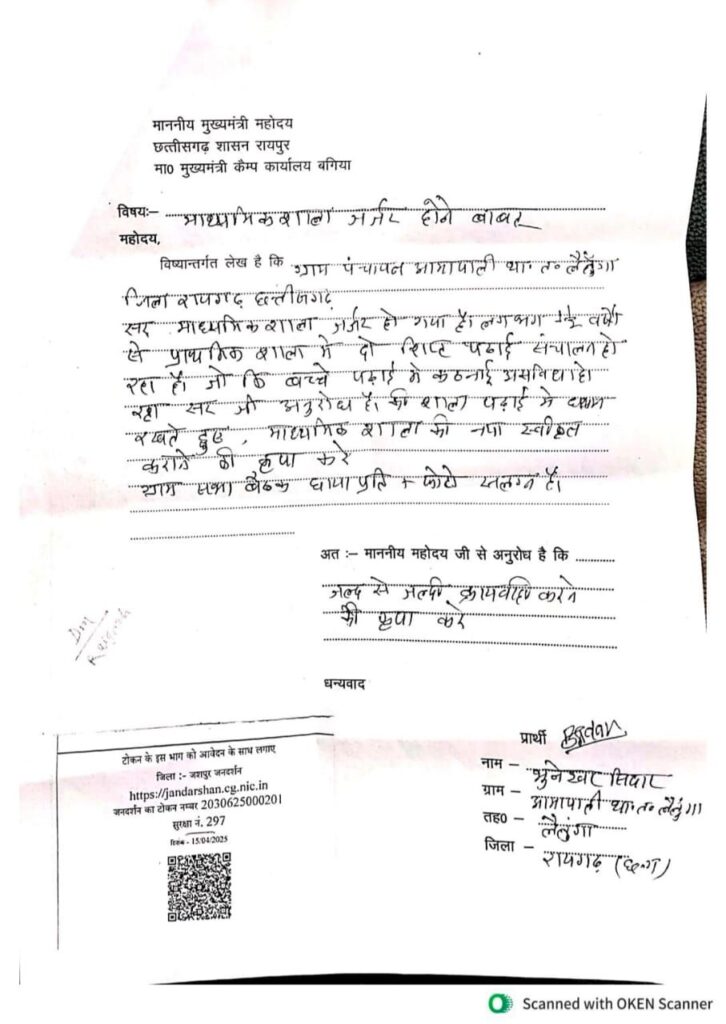 माननीय मुख्यमंत्री महोदय
छत्तीसगढ़ शासन रायपुर
मा0 मुख्यमंत्री कैम्प कार्यालय बगिया
विषयः- माध्यमिक शाला जर्जर होने बाबत
महोदय,
विष्यान्तर्गत लेख है कि ग्राम पंचायत आमापाली था.त. लैलुंगा
जिला रायगढ़ छत्तीसगढ़
सर माध्यमिक शाला जर्जर हो गया है। लगभग वर्षो
से प्राथमिक शाला मे दो शिप्ट पढाई संचालन हो
रहा है। जो कि बच्चे पढाई मे कठनाई असविधा हो
रहा सर जी अनुरोध है। की शाला पढाई मे ध्यान
रखते हुए, माध्यमिक शाला की नया स्वीकृत
कराने की कृपा करे
ग्राम सभा बैठक छायाप्रति + फोटो सलग्न है।
अत :- माननीय महोदय जी से अनुरोध है कि ..........
जल्द से जल्दी कार्यवाही करने
की कृपा करे
Dm
Raigarh
धन्यवाद
प्रार्थी
नाम – भुनेश्वर सिदार
ग्राम – आमापाली था.त. लैलुंगा
तह0 – लैलुंगा
जिला – रायगढ़ (छ.ग)
टोकन के इस भाग को आवेदन के साथ लगाए
जिला :- जशपुर जनदर्शन
https://jandarshan.cg.nic.in
जनदर्शन का टोकन नम्बर 2030625000201
सुरक्षा नं. 297
दिनांक - 15/04/2025
Scanned with OKEN Scanner